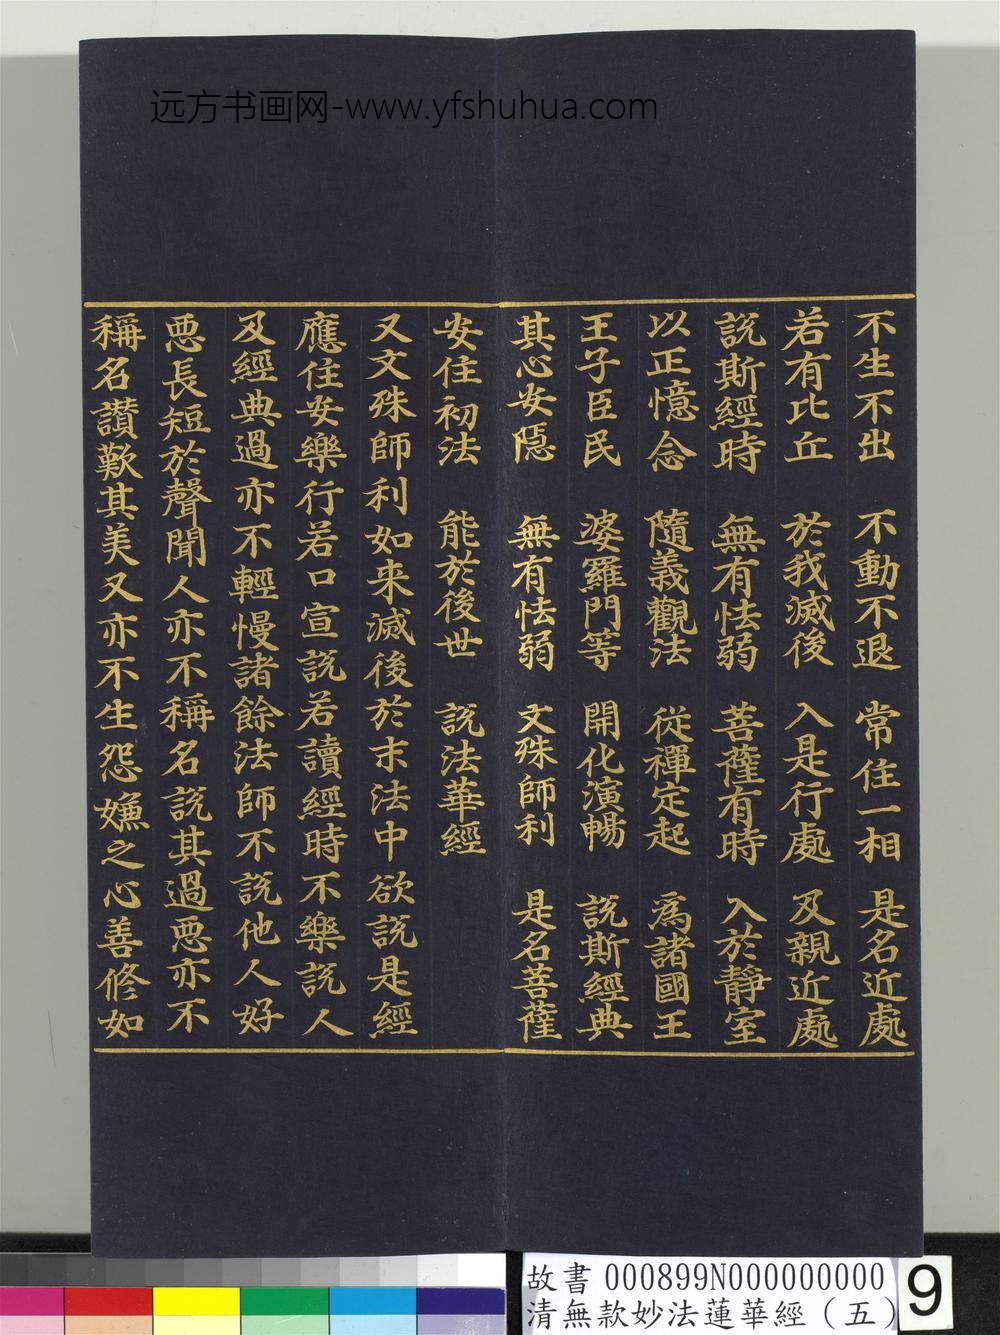 远方书画网-www.yfshuhua.com
不生不出 不動不退 常住一相 是名近處
若有比丘 於我滅後 入是行處 及親近處
說斯經時 無有怯弱 菩薩有時 入於靜室
以正憶念 隨義觀法 從禪定起 為諸國王
王子臣民 婆羅門等 開化演暢 說斯經典
其心安隱 無有怯弱 文殊師利 是名菩薩
安住初法 能於後世 說法華經
又文殊師利如来滅後於末法中欲說是經
應住安樂行若口宣說若讀經時不樂說人
及經典過亦不輕慢諸餘法師不說他人好
惡長短於聲聞人亦不稱名說其過惡亦不
稱名讃歎其美又亦不生怨嫌之心善修如
故書 000899N000000000
清無款妙法蓮華經（五）
9